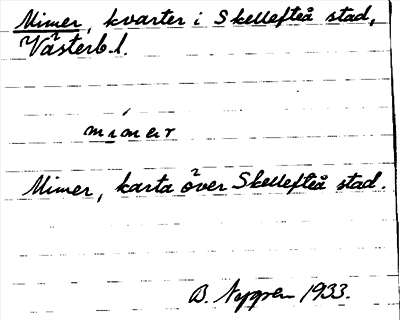 Mimer, kvarter i Skellefteå stad,
Västerb.l.
mı́mer
Mimer, karta över Skellefteå stad.
B. Nygren 1933.